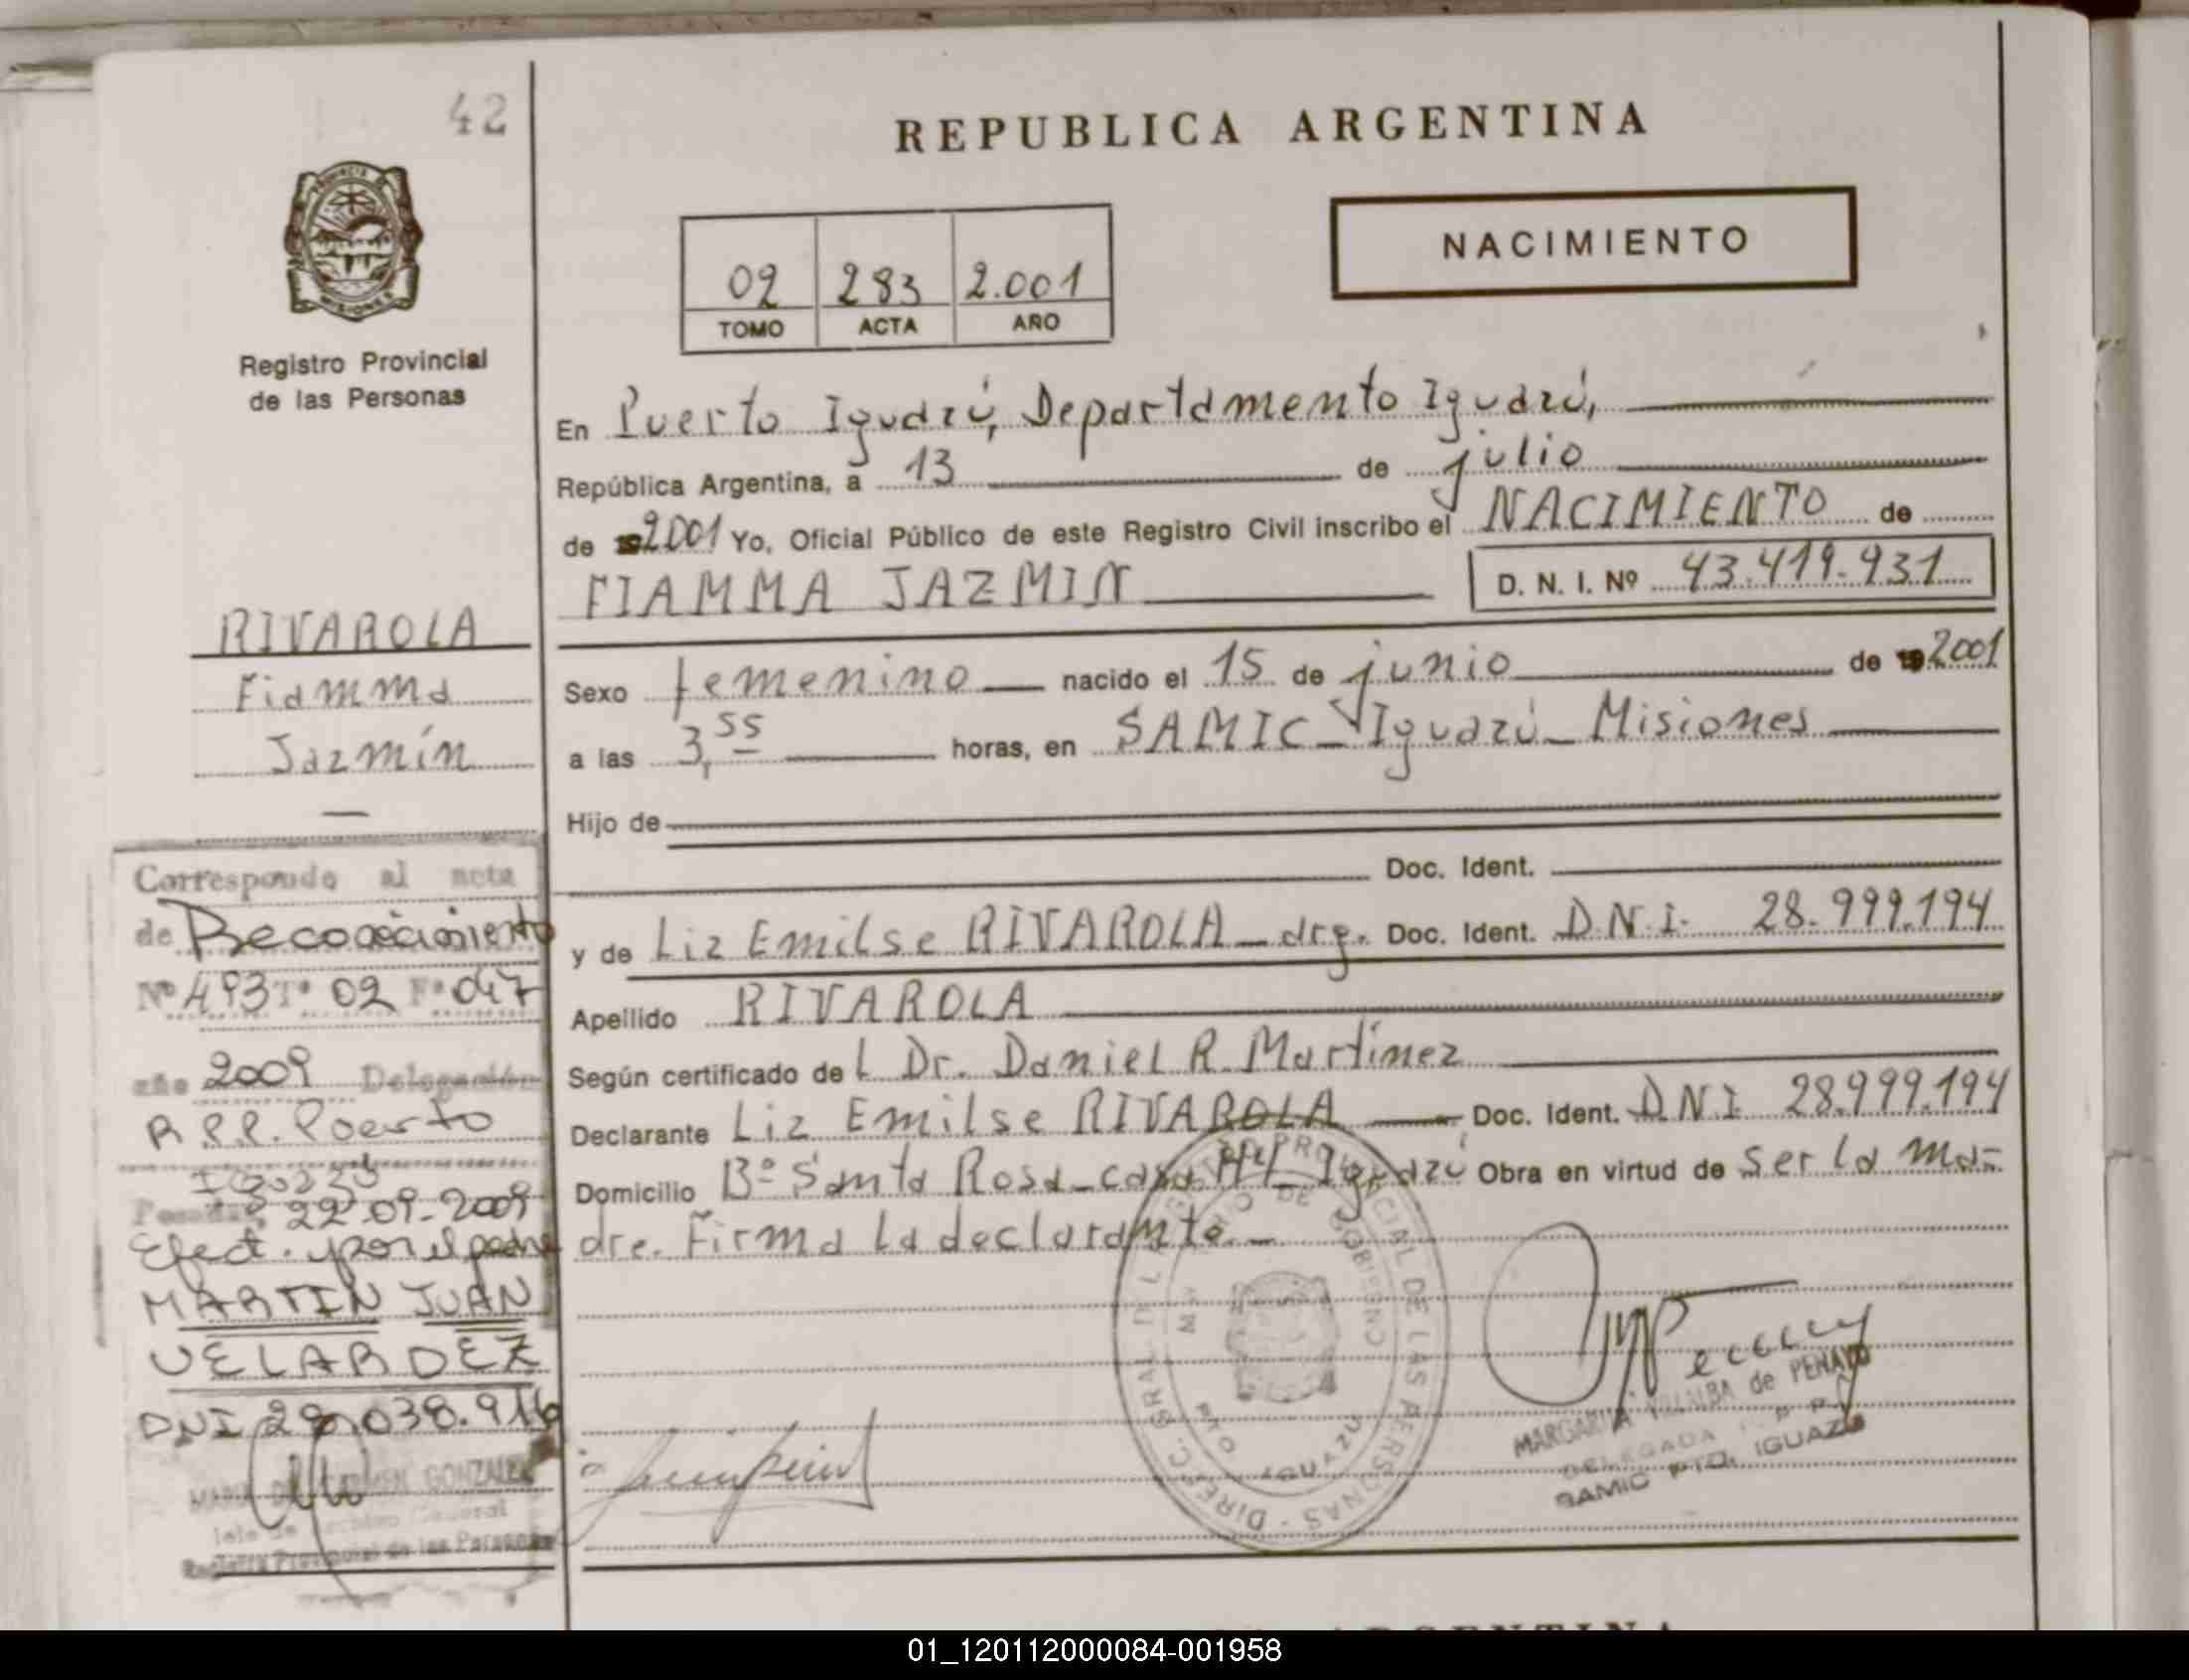 42
REPUBLICA ARGENTINA
NACIMIENTO
02 283 2.001
TOMO ACTA AÑO
Registro Provincial
de las Personas
En Puerto Iguazú, Departamento Iguazú,
República Argentina, a 13 de julio
de 2001 Yo, Oficial Público de este Registro Civil inscribo el NACIMIENTO de
FIAMMA JAZMIN D. N. I. Nº 43.419.931
RIVAROLA
Fiamma
Jazmín
Sexo femenino nacido el 15 de junio de 2001
a las 3,55 horas, en SAMIC - Iguazú - Misiones
Hijo de
Doc. Ident.
y de Liz Emilse RIVAROLA - arg. Doc. Ident. D.N.I. 28.999.194
Apellido RIVAROLA
Según certificado del Dr. Daniel R. Martínez
Declarante Liz Emilse RIVAROLA Doc. Ident. D.N.I 28.999.194
Domicilio Bº Santa Rosa - casa Iguazú Obra en virtud de ser la ma-
dre. Firma la declarante. -
Corresponde al acta
de Reconocimiento
Nº 493 Tº 02 Fº 047
año 2009 Delegación
R.P.P. Puerto
Iguazú
Posadas, 22-09-2009
Efect. por el padre
MARTIN JUAN
VELARDEZ
DNI 038.916
MARIA DEL CARMEN GONZALEZ
Jefe de Archivo General
Registro Provincial de las Personas
DIREC. GRAL. DEL REGISTRO PROVINCIAL DE LAS PERSONAS
DE GOBIERNO
PTO IGUAZU
MARGARITA VILLALBA de PENAYO
DELEGADA
SAMIC PTO. IGUAZU
ARGENTINA
01_120112000084-001958